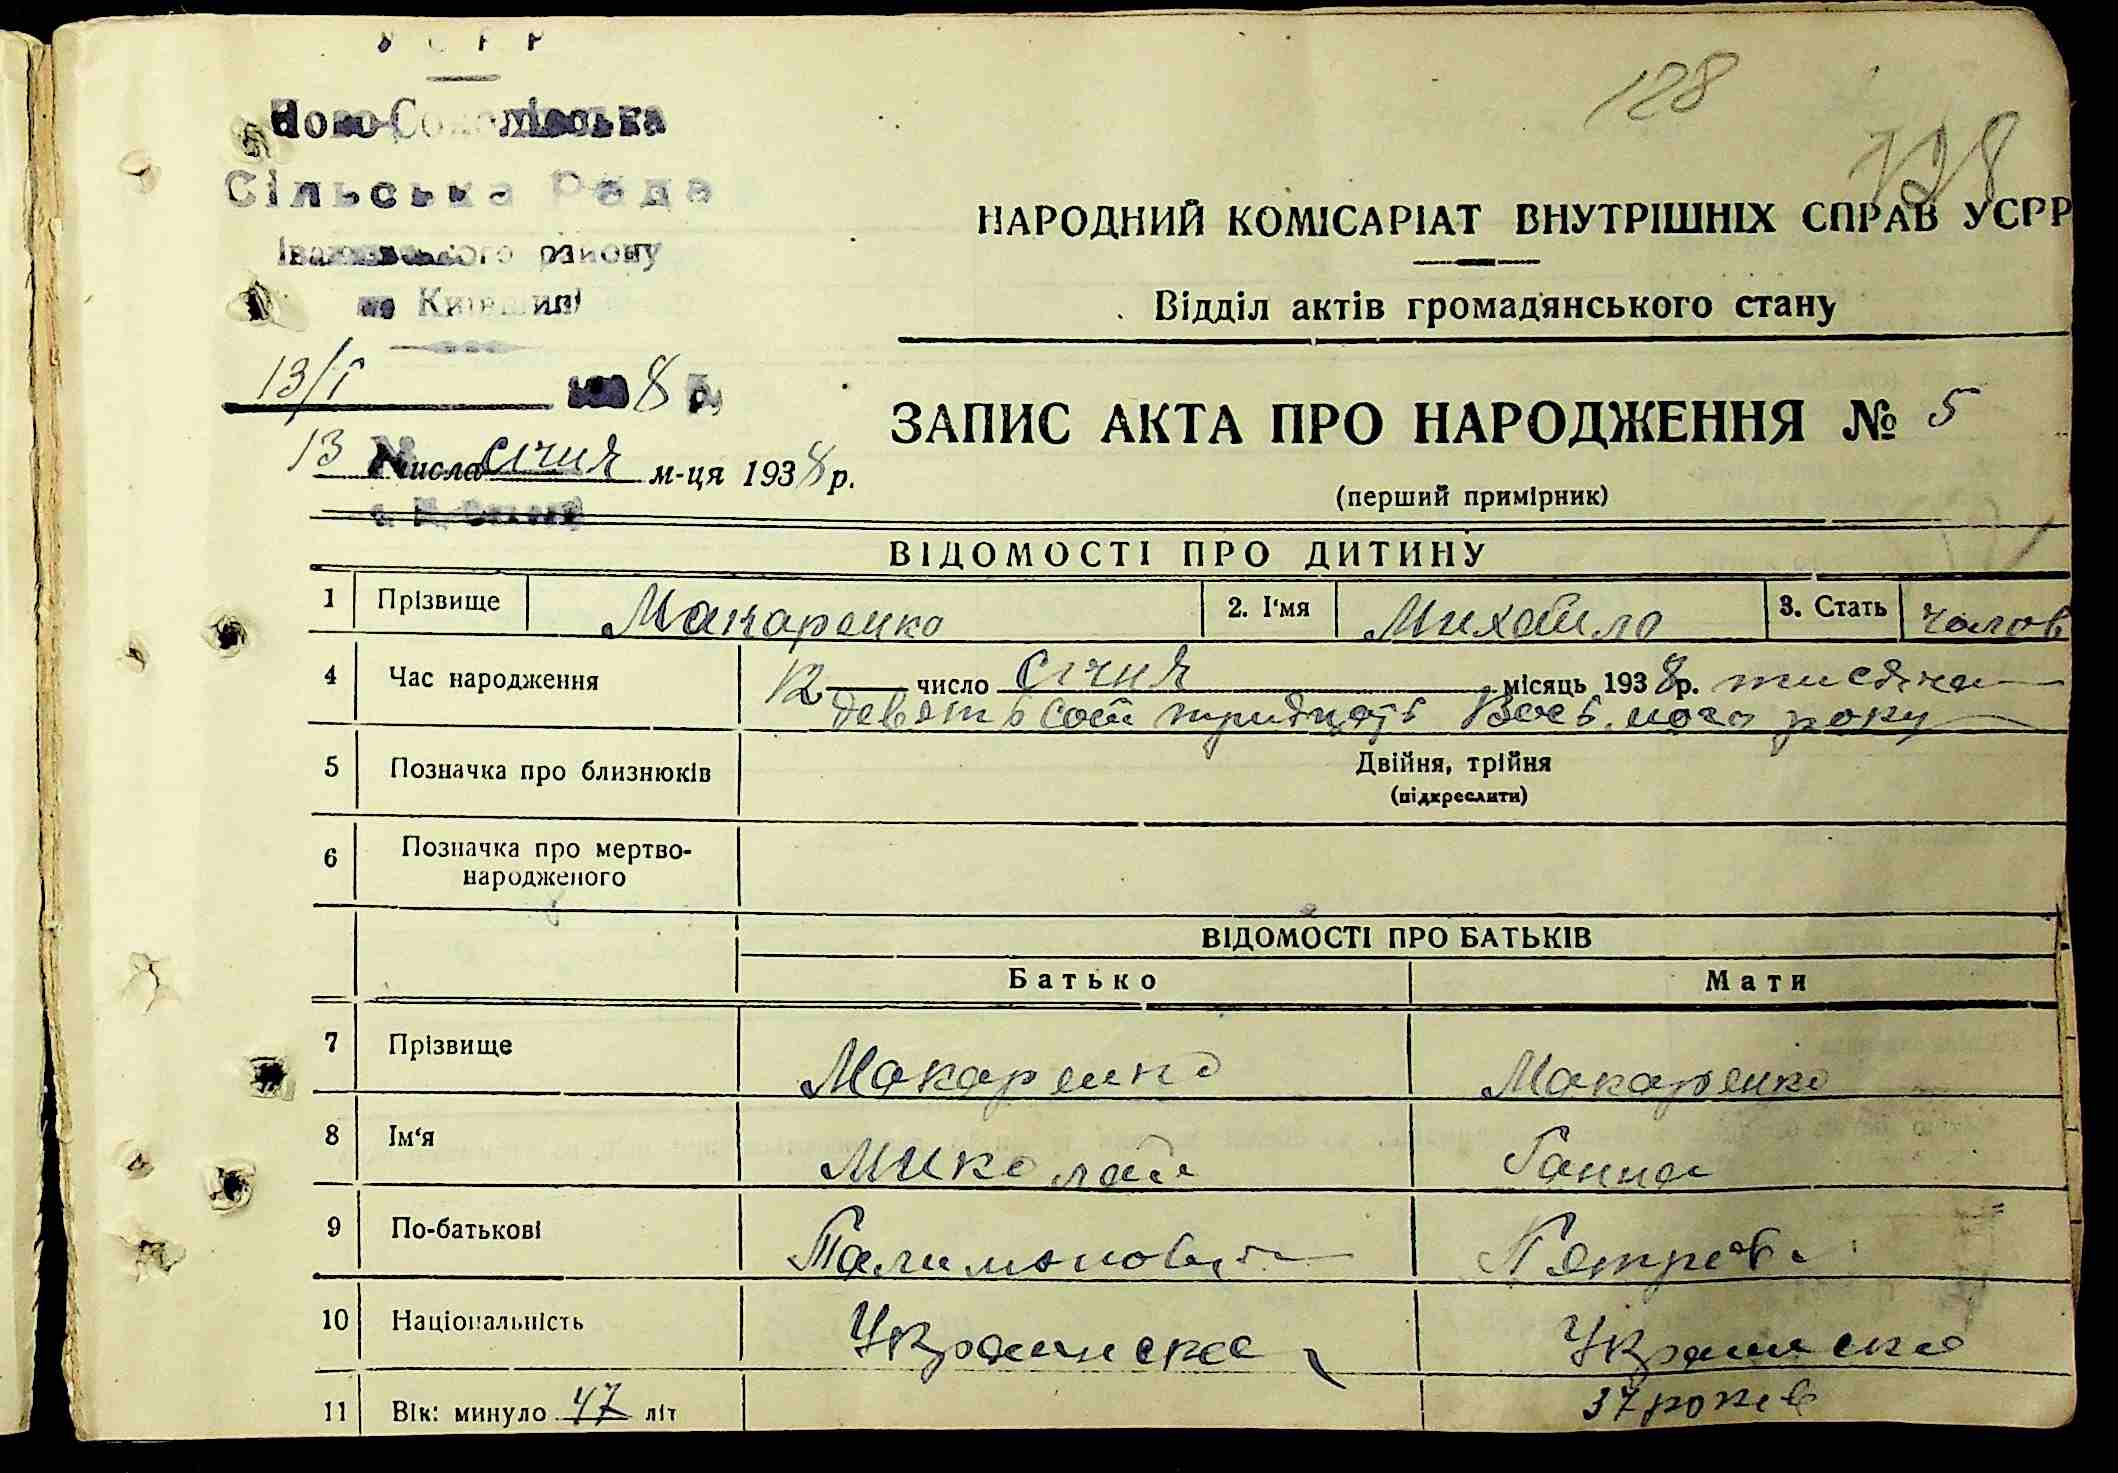 УСРР
Ново-Сокоміївська
Сільська Рада
району
Київщині
13/I 1938 р.
13 числа січня м-ця 1938 р.
128
128
НАРОДНИЙ КОМІСАРІАТ ВНУТРІШНІХ СПРАВ УСРР
Відділ актів громадянського стану
ЗАПИС АКТА ПРО НАРОДЖЕННЯ № 5
(перший примірник)
ВІДОМОСТІ ПРО ДИТИНУ
1 Прізвище Макаренко 2. І'мя Михайло 3. Стать чолов
4 Час народження 12 число січня місяць 1938 р. тисяча
девятьсот тридцять Восьмого року
5 Позначка про близнюків Двійня, трійня
(підкреслити)
6 Позначка про мертво-
народженого
ВІДОМОСТІ ПРО БАТЬКІВ
Батько Мати
7 Прізвище Макаренко Макаренко
8 Ім'я Миколай Ганна
9 По-батькові Палимонович Петрів
10 Національність Украинска Украинска
11 Вік: минуло 47 літ 37 років